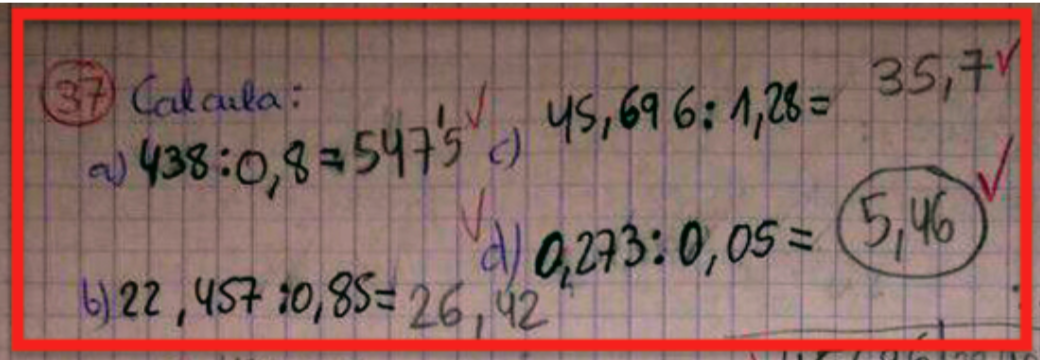 37 Calcula:
a) 438:0,8=547'5
b) 22,457:0,85=26,42
c) 45,696:1,28= 35,7
d) 0,273:0,05= 5,46